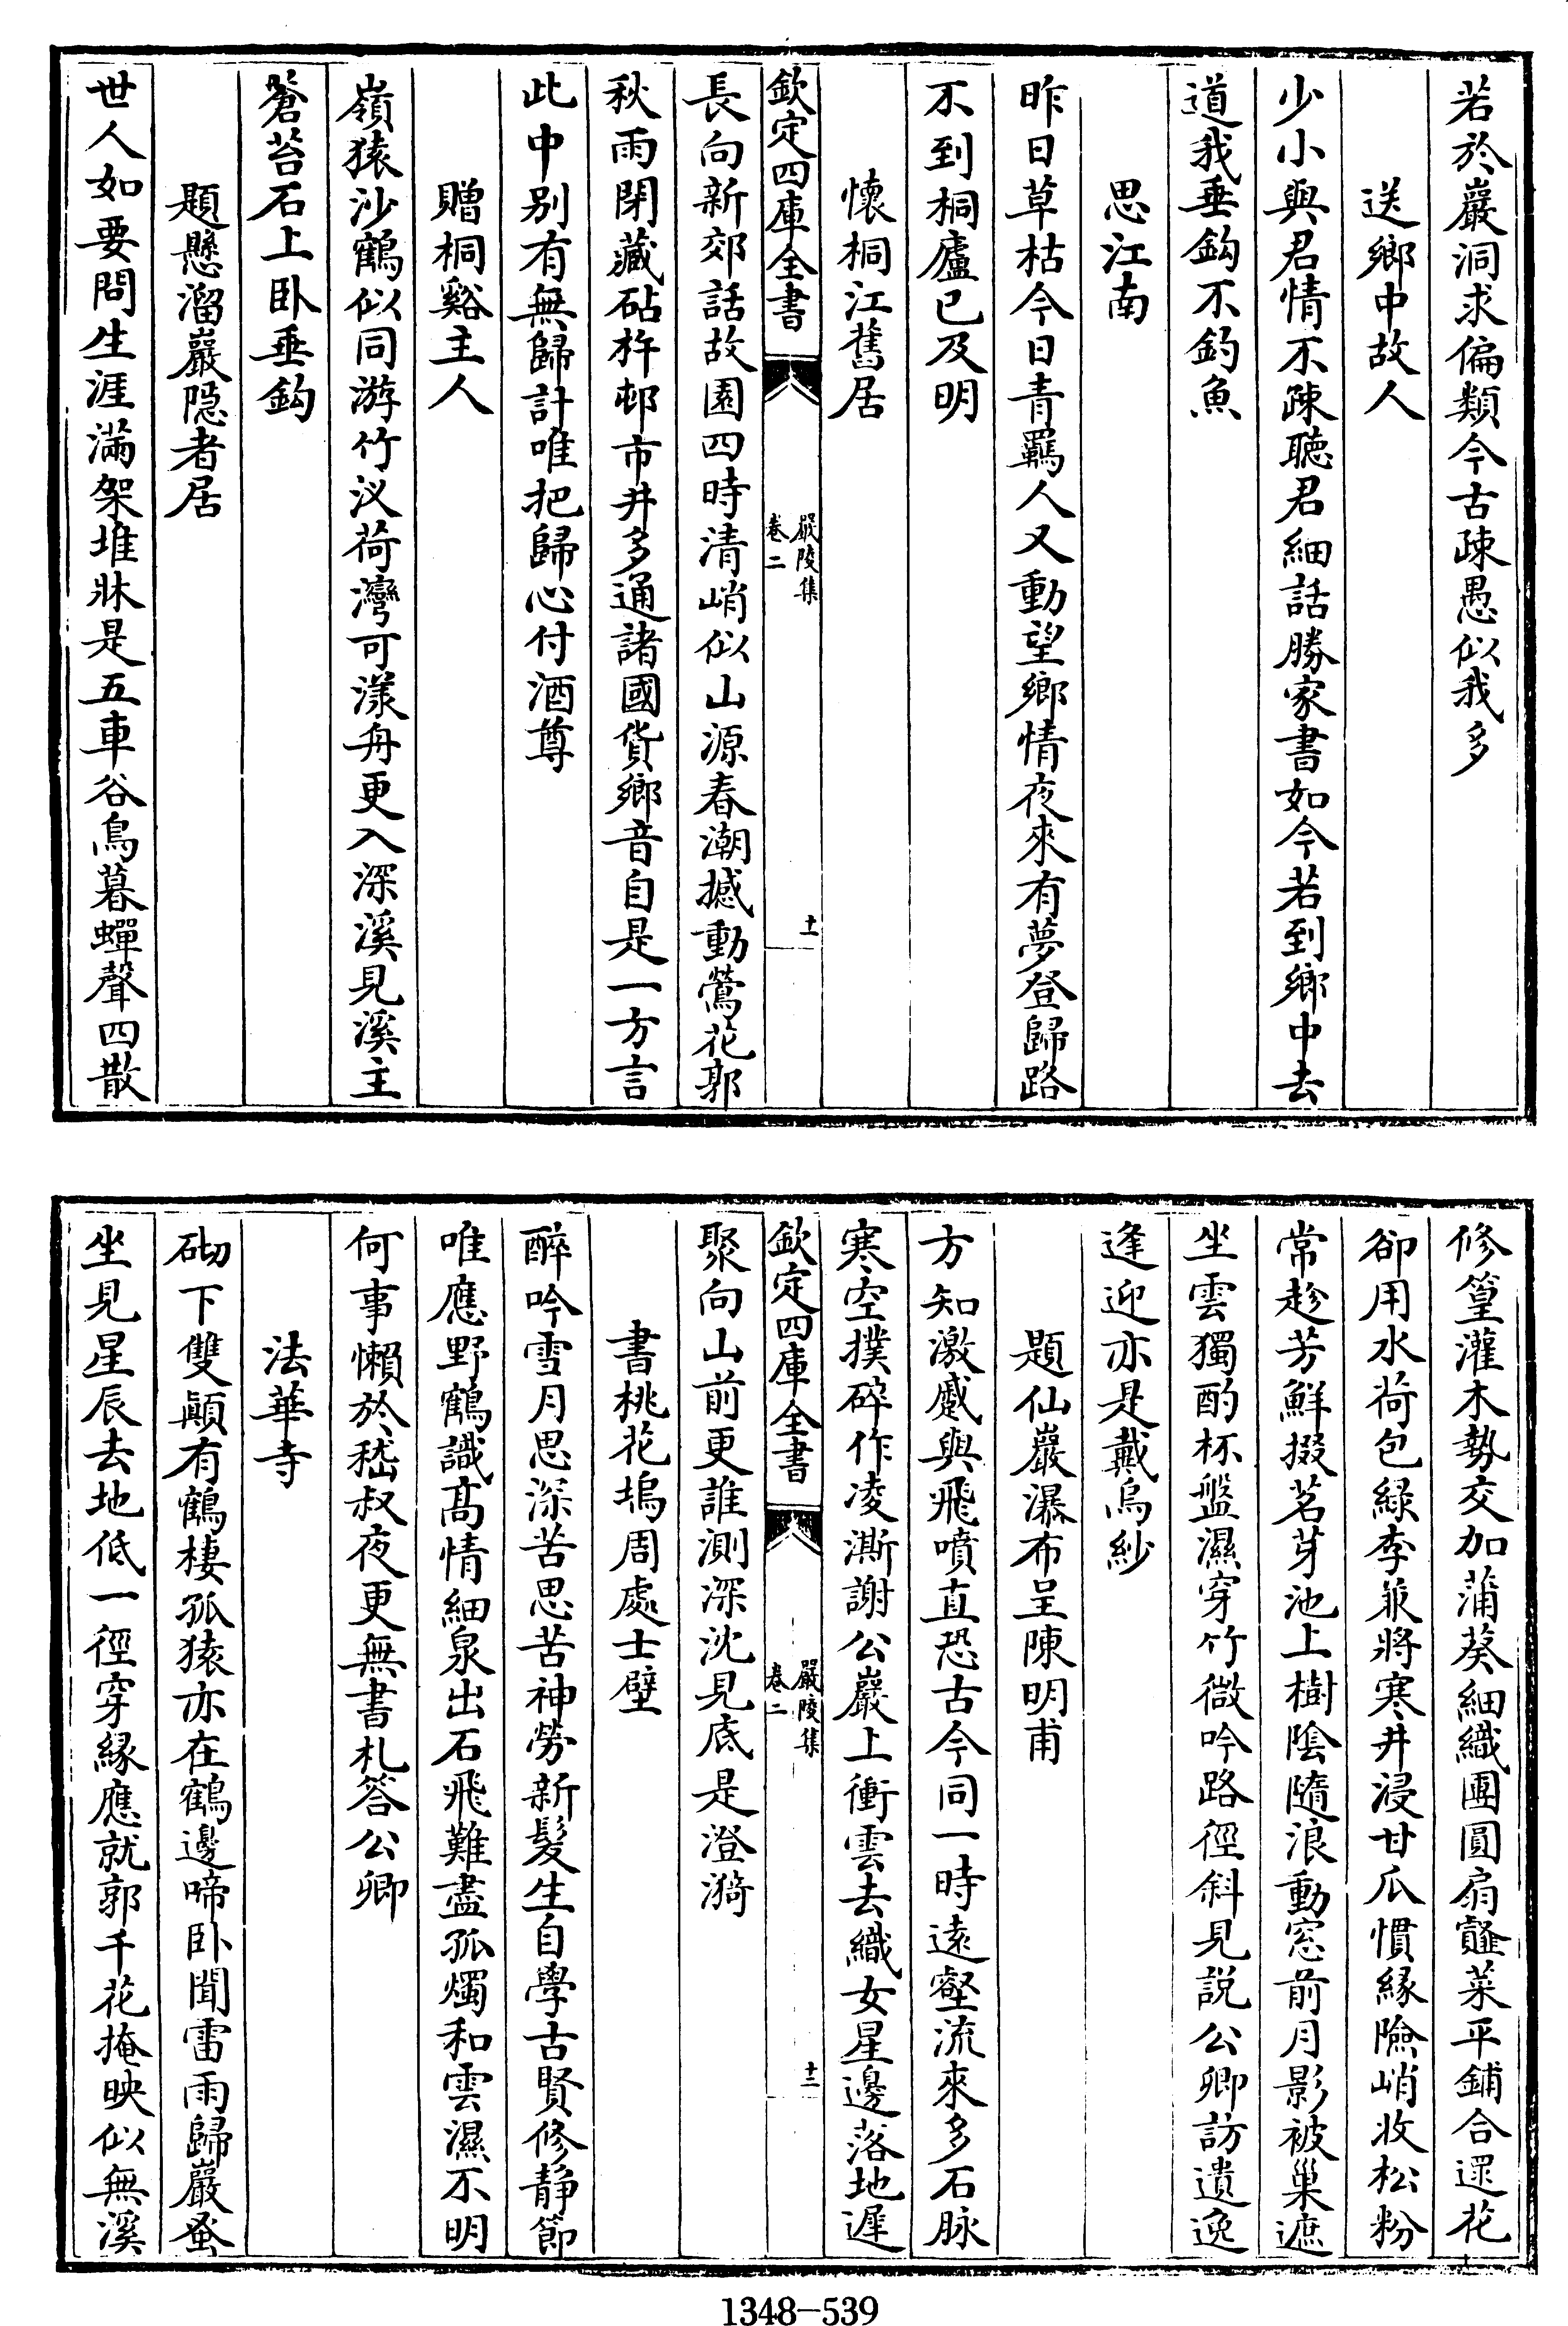 若於巖洞求偏類今古疎愚似我多
送鄉中故人
少小與君情不疎聴君細話勝家書如今若到鄉中去
道我垂鈎不釣魚
思江南
昨日草枯今日青羈人又動望鄉情夜來有夢登歸路
不到桐廬已及明
懷桐江舊居
欽定四庫全書
嚴陵集
卷二
十一
長向新郊話故園四時清峭似山源春潮撼動鶯花郭
秋雨閉藏砧杵邨市井多通諸國貨鄉音自是一方言
此中别有無歸計唯把歸心付酒尊
贈桐谿主人
嶺猿沙鶴似同游竹汊荷灣可漾舟更入深溪見溪主
蒼苔石上卧垂鈎
題懸溜巖隠者居
世人如要問生涯滿架堆牀是五車谷鳥暮蟬聲四散
修篁灌木勢交加蒲葵細織團圓扇薤菜平鋪合遝花
卻用水荷包緑李兼將寒井浸甘瓜慣緣險峭收松粉
常趁芳鮮掇茗芽池上樹陰隨浪動窓前月影被巢遮
坐雲獨酌杯盤濕穿竹微吟路徑斜見說公卿訪遺逸
逢迎亦是戴烏紗
題仙巖瀑布呈陳明甫
方知激蹙與飛噴直恐古今同一時遠壑流來多石脉
寒空撲碎作凌澌謝公巖上衝雲去織女星邊落地遲
欽定四庫全書
嚴陵集
卷二
十二
聚向山前更誰測深沈見底是澄漪
書桃花塢周處士壁
醉吟雪月思深苦思苦神勞新髮生自學古賢修静節
唯應野鶴識髙情細泉出石飛難盡孤燭和雲濕不明
何事懶於嵇叔夜更無書札答公卿
法華寺
砌下雙顛有鶴棲孤猿亦在鶴邊啼卧聞雷雨歸巖蚤
坐見星辰去地低一徑穿緣應就郭千花掩映似無溪
1348-539